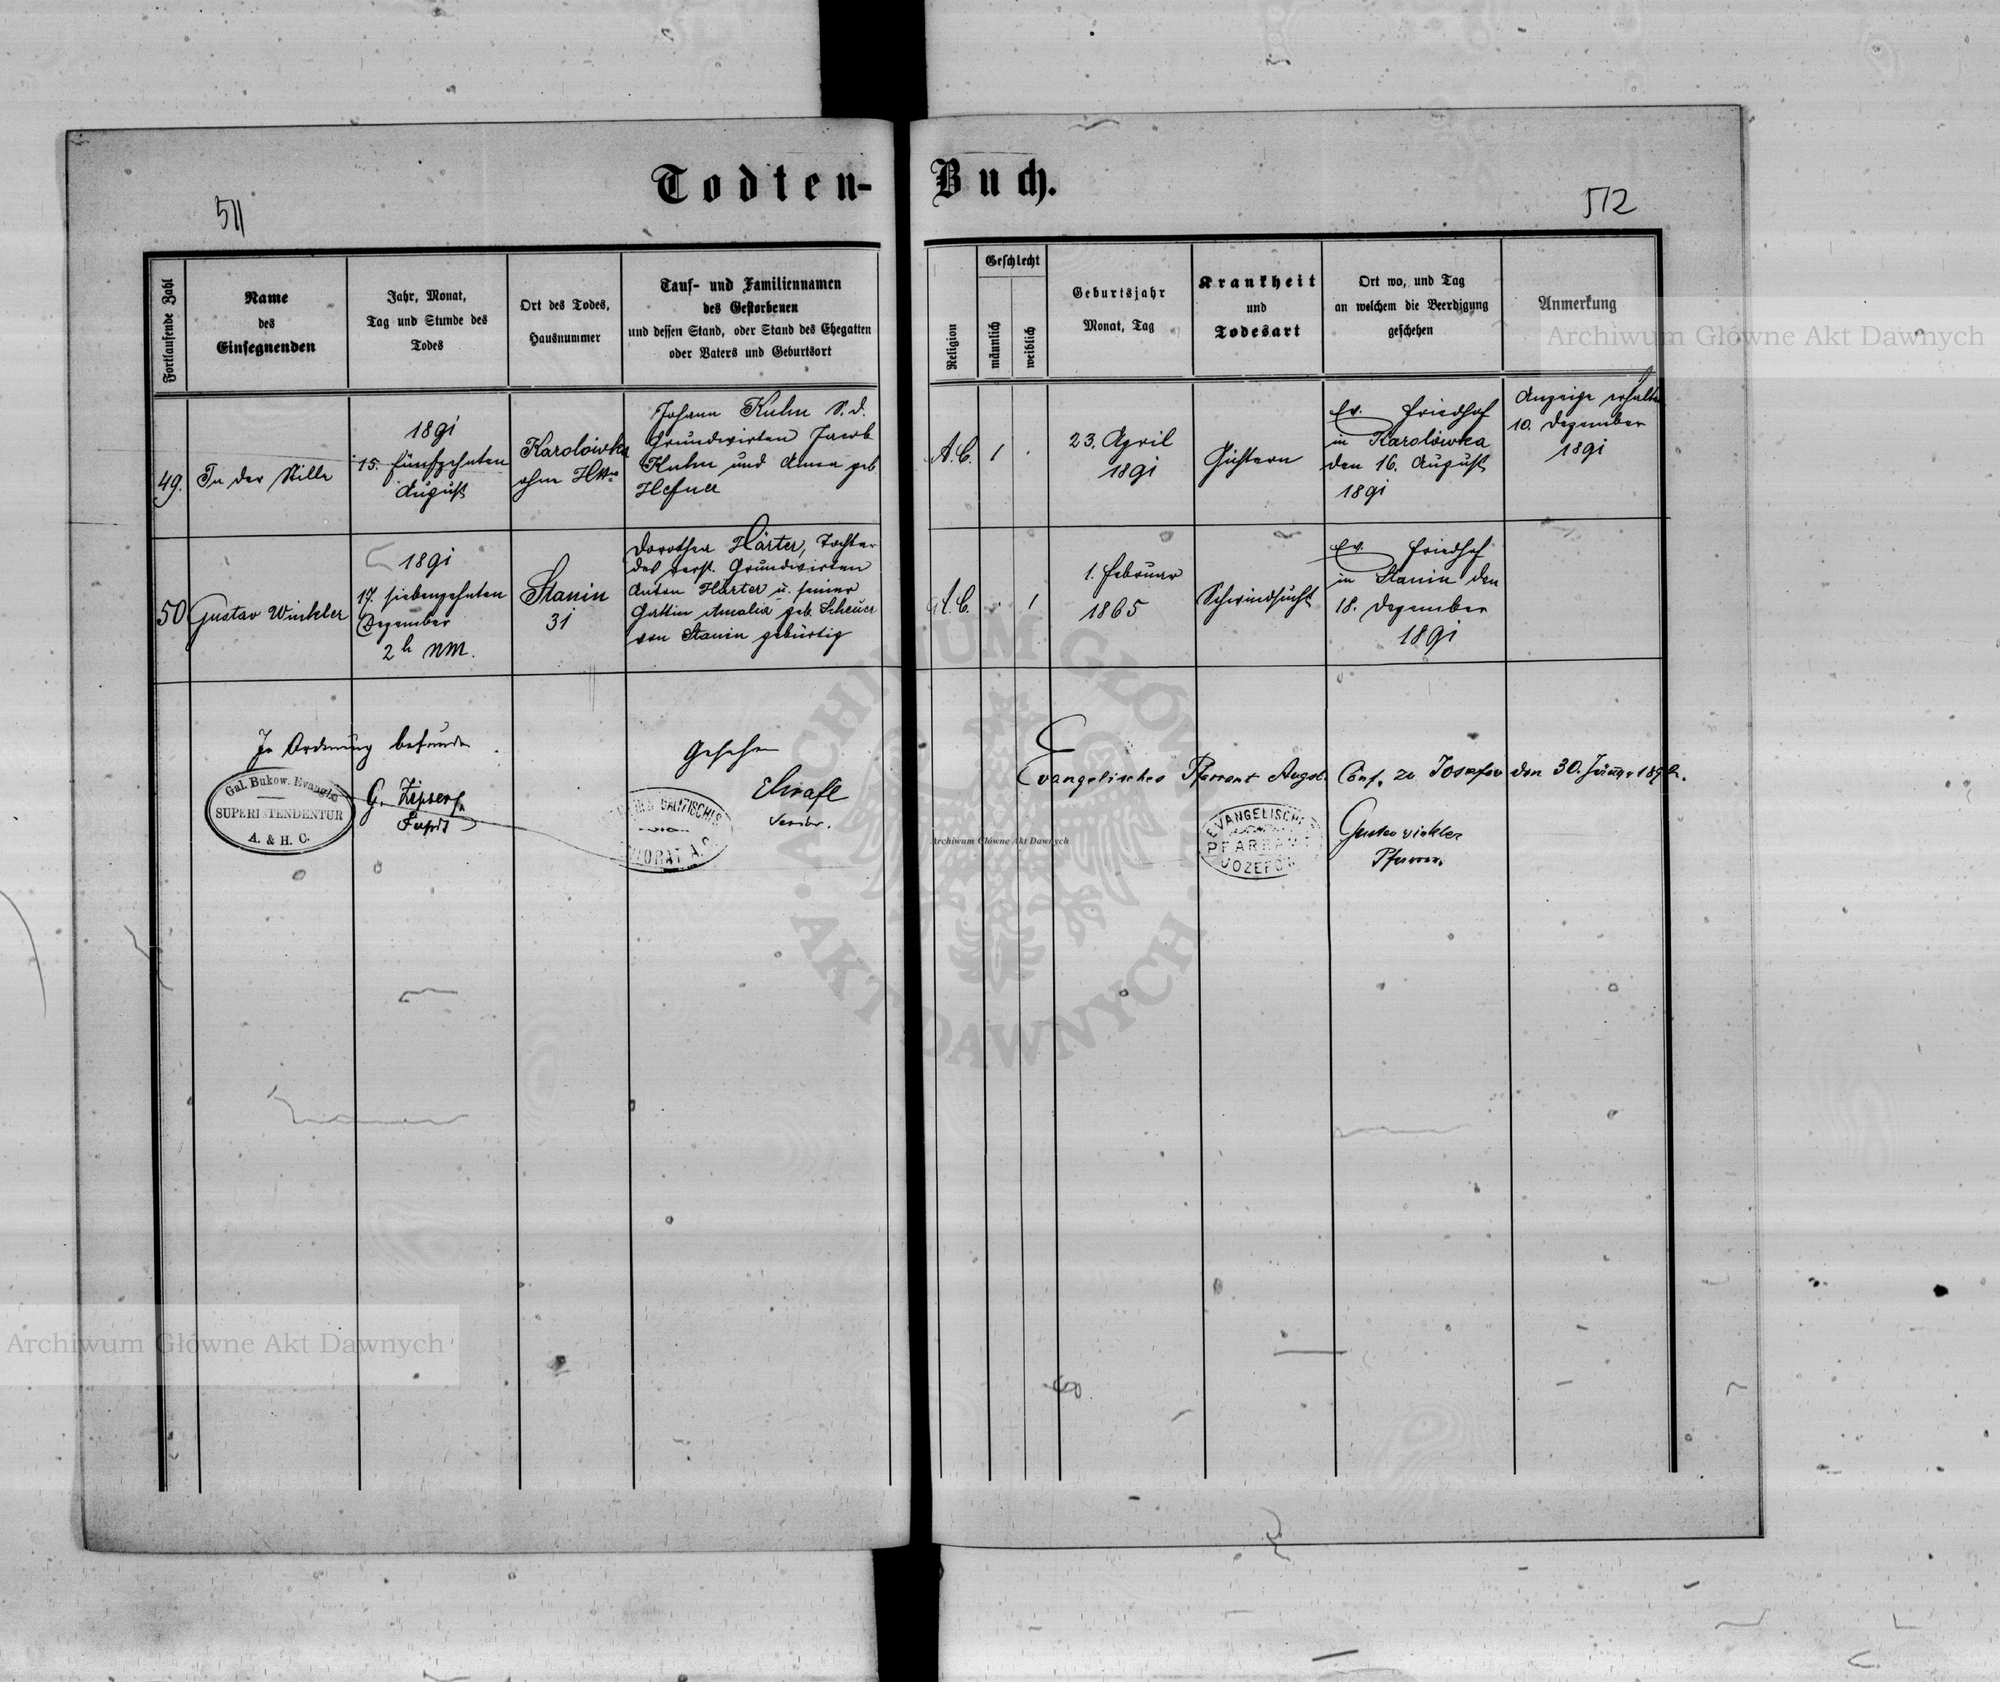 Todten-Buch.
511
512
Fortlaufende Zahl
Name
des
Einsegnenden
Jahr, Monat,
Tag und Stunde des
Todes
Ort des Todes,
Hausnummer
Tauf- und Familiennamen
des Gestorbenen
und dessen Stand, oder Stand des Ehegatten
oder Vaters und Geburtsort
Religion
Geschlecht
männlich
weiblich
Geburtsjahr
Monat, Tag
Krankheit
und
Todesart
Ort wo, und Tag
an welchem die Beerdigung
geschehen
Anmerkung
49.
In der Stille
1891
15. fünfzehnten
August
Karolówka
ohne HNro
Johann Kuhn S. d.
Grundwirten Jacob
Kuhn und Anna geb
Hefner
A.C.
1
23. April
1891
Gichtern
Ev. Friedhof
in Karolówka
den 16. August
1891
Anzeige erhalten
10. Dezember
1891
50
Gustav Winkler
1891
17. siebenzehnten
Dezember
2h NM.
Stanin
31
Dorothea Härter, Tochter
des verst. Grundwirten
Anton Härter u. seiner
Gattin Amalia geb. Scheuer
von Stanin gebürtig
A.C.
1
1. Februar
1865
Schwindsucht
Ev. Friedhof
in Stanin den
18. Dezember
1891
In Ordnung befunden
Gal. Bukow. Evangl.
SUPERINTENDENTUR
A. & H. C.
Gesehen
Senior.
GALIZISCHES
Evangelisches Pfarramt Augsb. Conf. zu Josefow den 30. Jänner 1892.
EVANGELISCHES
PFARRAMT
JOZEFÓW
Gustav Winkler
Pfarrer.
Archiwum Główne Akt Dawnych
Archiwum Główne Akt Dawnych
Archiwum Główne Akt Dawnych
ARCHIWUM GŁÓWNE
AKT DAWNYCH